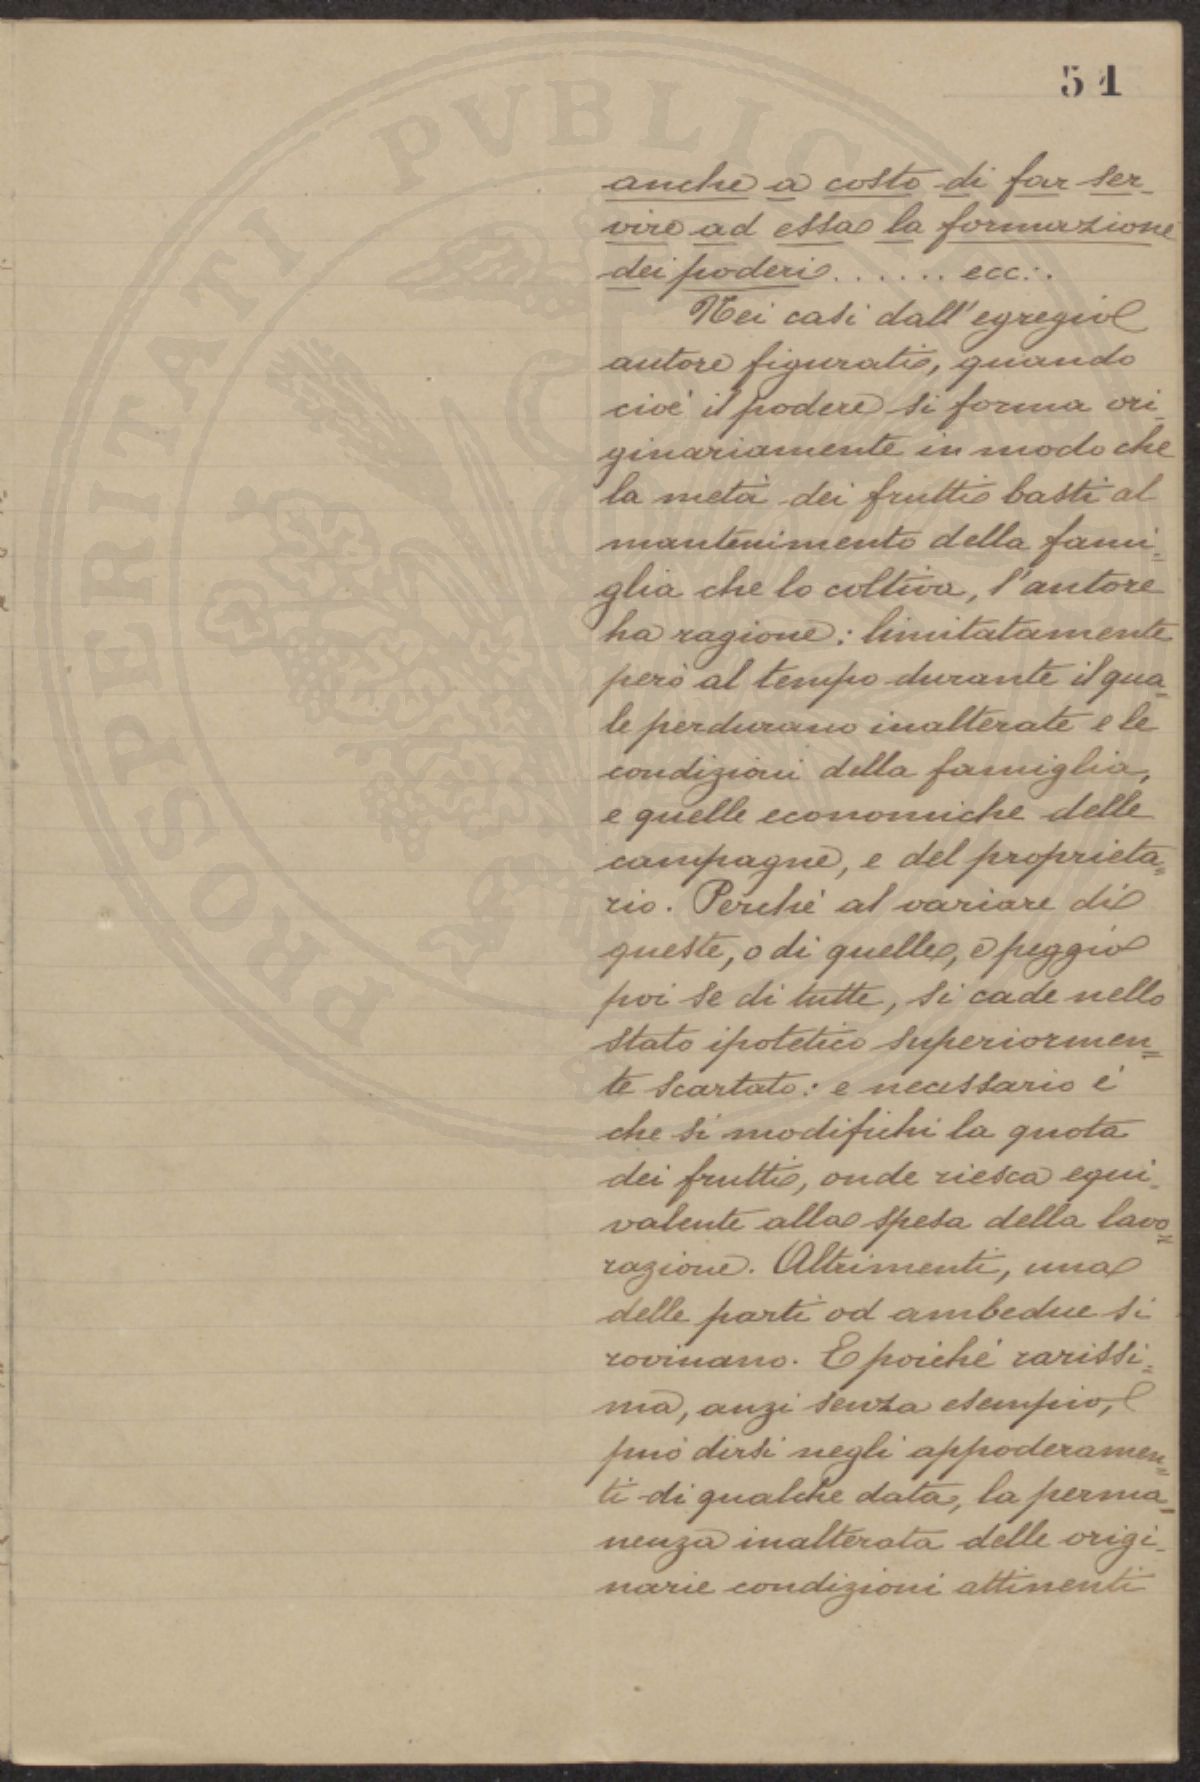 51
anche a costo di far ser-
vire ad essa la formazione
dei poderi ....... ecc:.
Nei casi dall'egregio
autore figurati, quando
cioè il podere si forma ori-
ginariamente in modo che
la metà dei frutti basti al
mantenimento della fami=
glia che lo coltiva, l'autore
ha ragione: limitatamente
però al tempo durante il qua=
le perdurano inalterate e le
condizioni della famiglia,
e quelle economiche delle
campagne, e del proprieta=
rio. Perché al variare di
queste, o di quelle, e peggio
poi se di tutte, si cade nello
stato ipotetico superiormen=
te scartato: e necessario è
che si modifichi la quota
dei frutti, onde riesca equi-
valente alla spesa della lavo=
razione. Altrimenti, una
delle parti od ambedue si
rovinano. E poiché rarissi=
ma, anzi senza esempio,
può dirsi negli appoderamen=
ti di qualche data, la perma=
nenza inalterata delle origi-
narie condizioni attinenti
PROSPERITATI PVBLIC